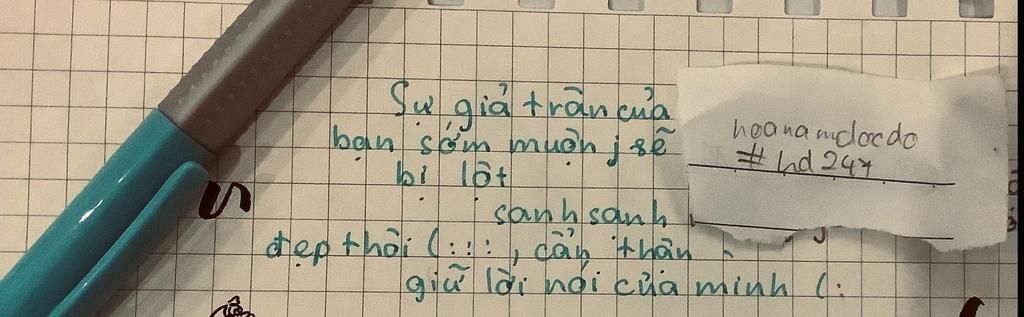 Sự giả trân của
bạn sớm muộn j sẽ
bị lột
sanh sanh
đẹp thôi (:::, cẩn thận
giữ lời nói của mình (:
hoanamdocdo
#hd247